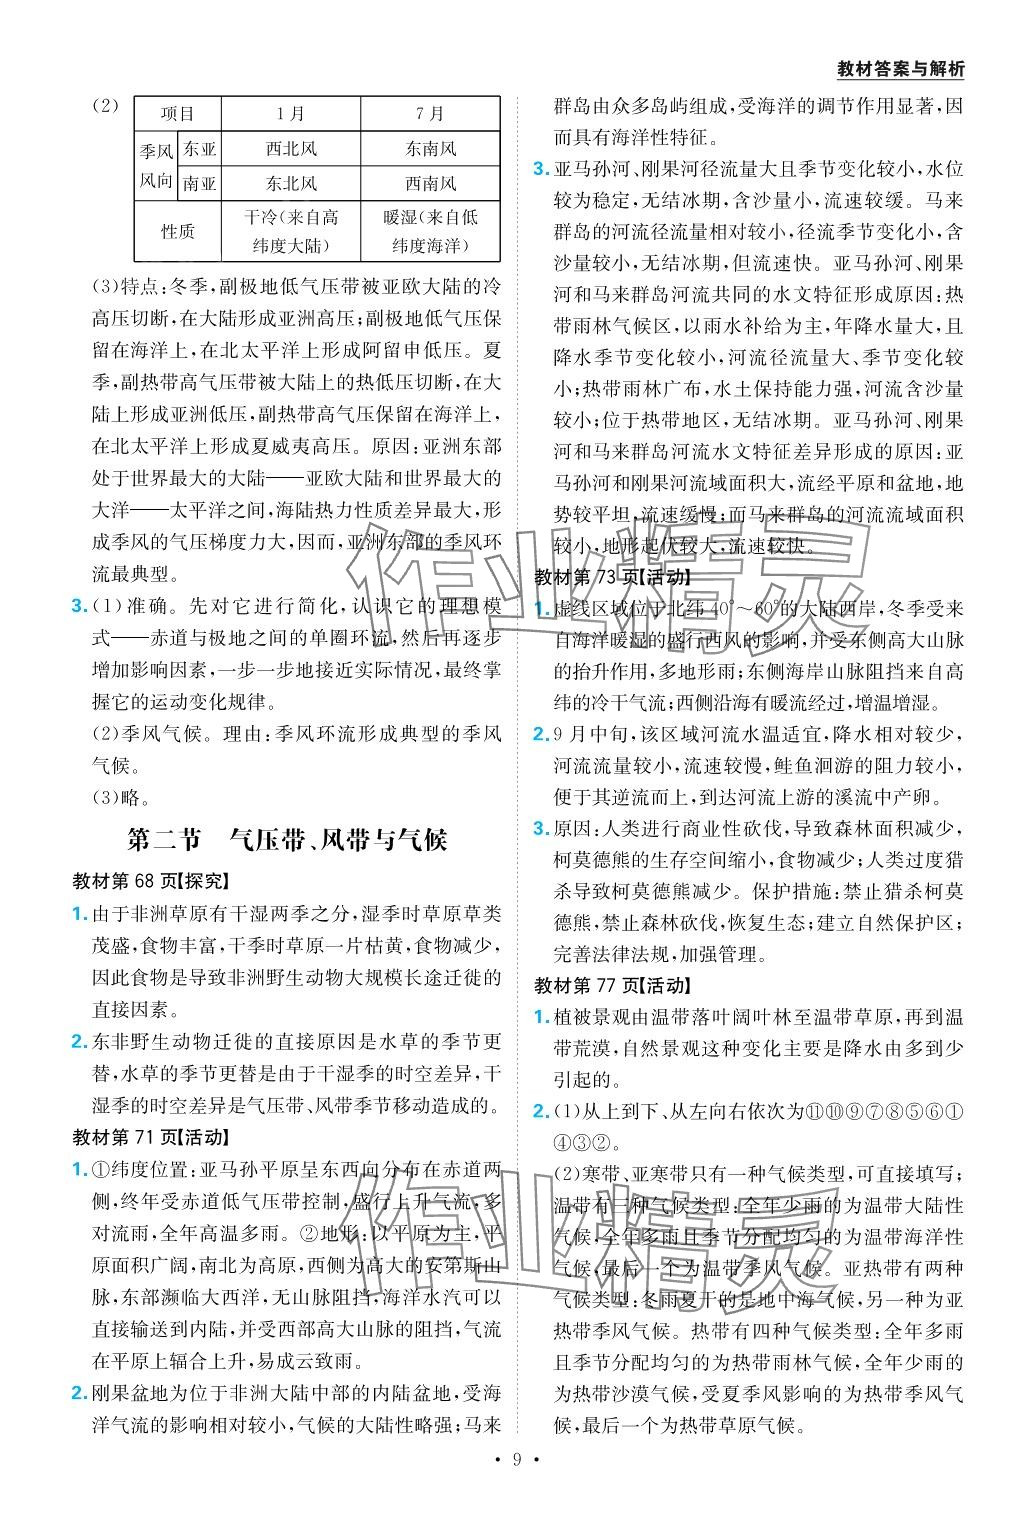 教材答案与解析
(2)
项目 1月 7月
季风风向 东亚 西北风 东南风
南亚 东北风 西南风
性质 干冷(来自高纬度大陆) 暖湿(来自低纬度海洋)
(3)特点:冬季,副极地低气压带被亚欧大陆的冷
高压切断,在大陆形成亚洲高压;副极地低气压保
留在海洋上,在北太平洋上形成阿留申低压。夏
季,副热带高气压带被大陆上的热低压切断,在大
陆上形成亚洲低压,副热带高气压保留在海洋上,
在北太平洋上形成夏威夷高压。原因:亚洲东部
处于世界最大的大陆——亚欧大陆和世界最大的
大洋——太平洋之间,海陆热力性质差异最大,形
成季风的气压梯度力大,因而,亚洲东部的季风环
流最典型。
3.(1)准确。先对它进行简化,认识它的理想模
式——赤道与极地之间的单圈环流,然后再逐步
增加影响因素,一步一步地接近实际情况,最终掌
握它的运动变化规律。
(2)季风气候。理由:季风环流形成典型的季风
气候。
(3)略。
第二节 气压带、风带与气候
教材第 68 页【探究】
1.由于非洲草原有干湿两季之分,湿季时草原草类
茂盛,食物丰富,干季时草原一片枯黄,食物减少,
因此食物是导致非洲野生动物大规模长途迁徙的
直接因素。
2.东非野生动物迁徙的直接原因是水草的季节更
替,水草的季节更替是由于干湿季的时空差异,干
湿季的时空差异是气压带、风带季节移动造成的。
教材第 71 页【活动】
1.①纬度位置:亚马孙平原呈东西向分布在赤道两
侧,终年受赤道低气压带控制,盛行上升气流,多
对流雨,全年高温多雨。②地形:以平原为主,平
原面积广阔,南北为高原,西侧为高大的安第斯山
脉,东部濒临大西洋,无山脉阻挡,海洋水汽可以
直接输送到内陆,并受西部高大山脉的阻挡,气流
在平原上辐合上升,易成云致雨。
2.刚果盆地为位于非洲大陆中部的内陆盆地,受海
洋气流的影响相对较小,气候的大陆性略强;马来
群岛由众多岛屿组成,受海洋的调节作用显著,因
而具有海洋性特征。
3.亚马孙河、刚果河径流量大且季节变化较小,水位
较为稳定,无结冰期,含沙量小,流速较缓。马来
群岛的河流径流量相对较小,径流季节变化小,含
沙量较小,无结冰期,但流速快。亚马孙河、刚果
河和马来群岛河流共同的水文特征形成原因:热
带雨林气候区,以雨水补给为主,年降水量大,且
降水季节变化较小,河流径流量大、季节变化较
小;热带雨林广布,水土保持能力强,河流含沙量
较小;位于热带地区,无结冰期。亚马孙河、刚果
河和马来群岛河流水文特征差异形成的原因:亚
马孙河和刚果河流域面积大,流经平原和盆地,地
势较平坦,流速缓慢;而马来群岛的河流流域面积
较小,地形起伏较大,流速较快。
教材第 73 页【活动】
1.虚线区域位于北纬 40°～60°的大陆西岸,冬季受来
自海洋暖湿的盛行西风的影响,并受东侧高大山脉
的抬升作用,多地形雨;东侧海岸山脉阻挡来自高
纬的冷干气流;西侧沿海有暖流经过,增温增湿。
2.9 月中旬,该区域河流水温适宜,降水相对较少,
河流流量较小,流速较慢,鲑鱼洄游的阻力较小,
便于其逆流而上,到达河流上游的溪流中产卵。
3.原因:人类进行商业性砍伐,导致森林面积减少,
柯莫德熊的生存空间缩小,食物减少;人类过度猎
杀导致柯莫德熊减少。保护措施:禁止猎杀柯莫
德熊,禁止森林砍伐,恢复生态;建立自然保护区;
完善法律法规,加强管理。
教材第 77 页【活动】
1.植被景观由温带落叶阔叶林至温带草原,再到温
带荒漠,自然景观这种变化主要是降水由多到少
引起的。
2.(1)从上到下、从左向右依次为⑪⑩⑨⑦⑧⑤⑥①
④③②。
(2)寒带、亚寒带只有一种气候类型,可直接填写;
温带有三种气候类型:全年少雨的为温带大陆性
气候,全年多雨且季节分配均匀的为温带海洋性
气候,最后一个为温带季风气候。亚热带有两种
气候类型:冬雨夏干的是地中海气候,另一种为亚
热带季风气候。热带有四种气候类型:全年多雨
且季节分配均匀的为热带雨林气候,全年少雨的
为热带沙漠气候,受夏季风影响的为热带季风气
候,最后一个为热带草原气候。
· 9 ·
作业精灵
作业精灵